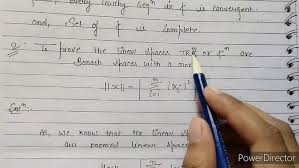 every cauchy seqⁿ in f is convergent
and, Set of f is complete.
Q: To prove the linear spaces ℝⁿ or ¢ⁿ are
Banach spaces with a norm
||x|| = | Σ |xᵢ|
i=1
Solⁿ.
As, we know that the linear
are normed linear
PowerDirector